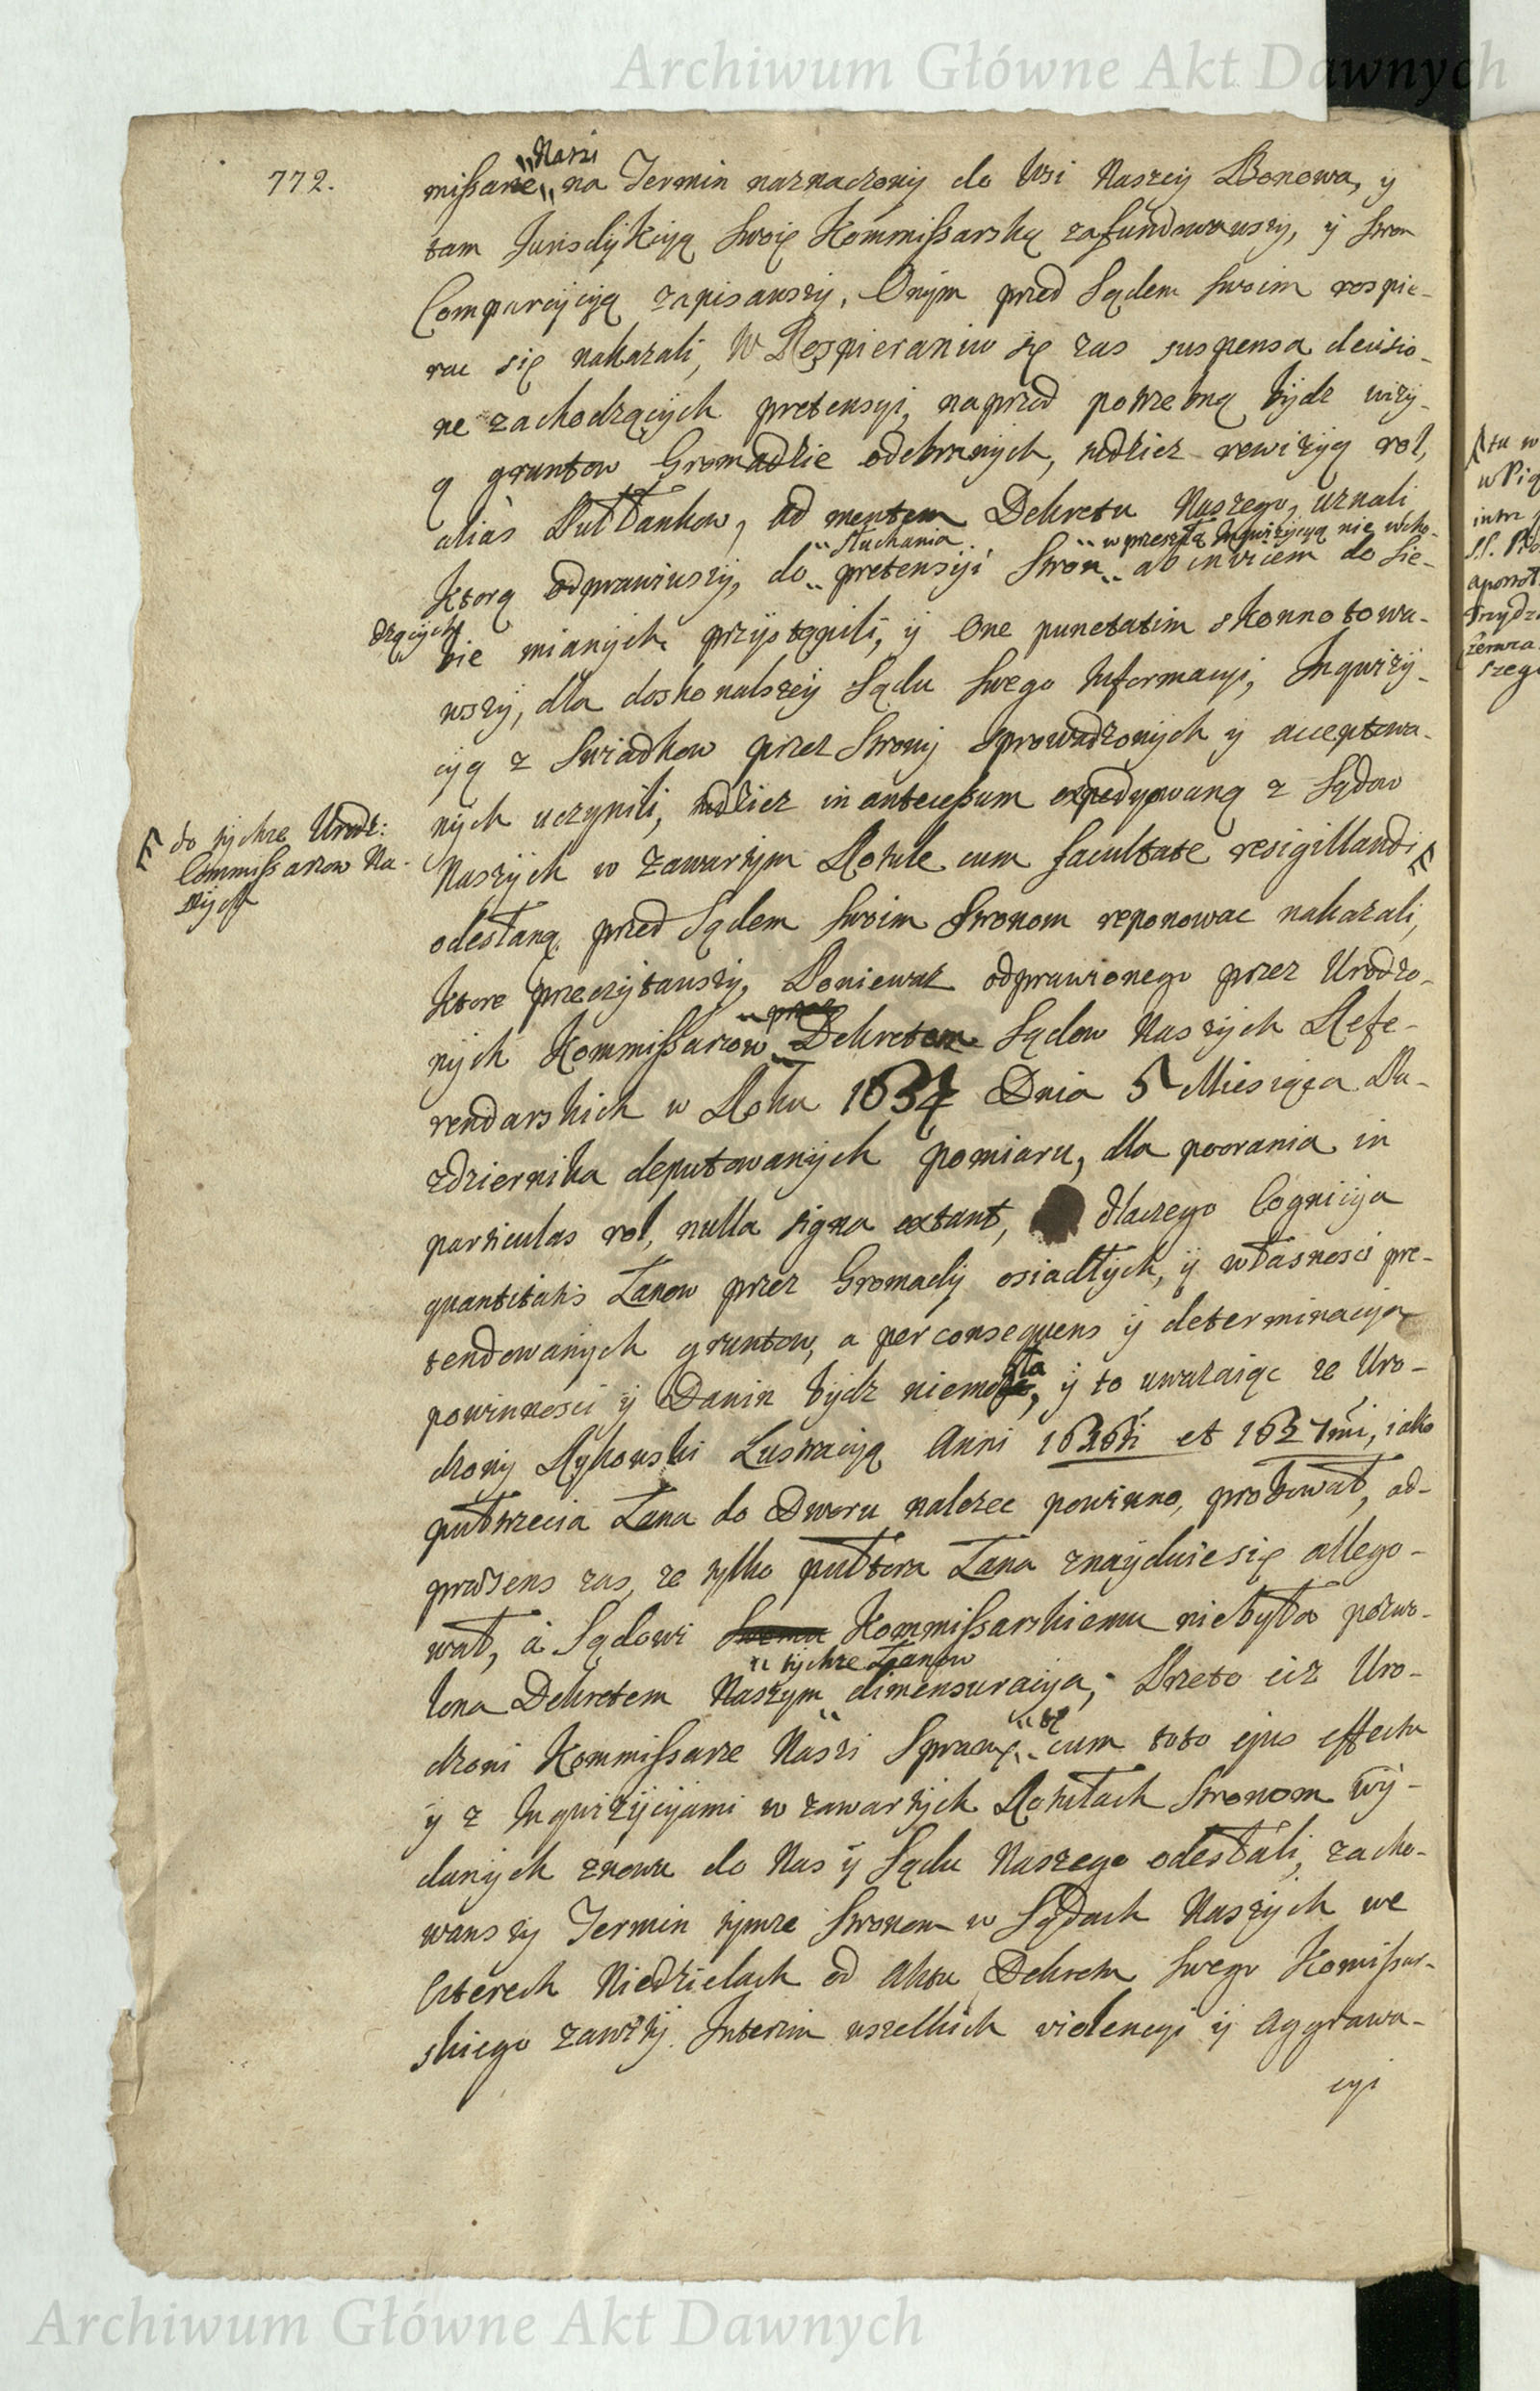 Archiwum Główne Akt Dawnych
772.
Nasi
missarze na Termin naznaczony do Wsi Naszey Bonowa, y
tam Jurisdykcyą swoię Kommissarską zafundowawszy, y stron
Comparycyą zapisawszy, Onym przed Sądem swoim rospie-
rac się nakazali, W Rospieraniu się zas suspensa decisio-
ne zachodzących pretensyi, naprzod potrzebną bydz wizy-
ą gruntow Gromadzie odebranych, tudziez rewizyą rol,
alias Pułłankow, ad mentem Dekretu Naszego, uznali
słuchania w przeszłą Inqwizycyą nie wcho-
Ktorą odprawiwszy, do pretensyi stron ab invicem do sie-
dzących
bie mianych przystąpili, y One punctatim skonnotowa-
wszy, dla doskonalszey Sądu swego Informacyi, Inqwizy-
cyą z swiadkow przez strony sprowadzonych y acceptowa-
nych uczynili, tudziez in antecessum expedyowaną z Sądow
do tychze Urodz:
Commissarzow Na-
szych
Naszych w zawartym Rotule cum facultate resigillandi
odesłaną przed Sądem swoim stronom reponowac nakazali,
Ktore przeczytawszy, Poniewaz odprawionego przez Urodzo-
nych Kommissarzow Dekretem Sądow Naszych Refe-
rendarskich w Roku 1634 Dnia 5 Miesiąca Pa-
zdziernika deputowanych pomiaru, dla poorania in
particulas rol, nulla signa extant, dlaczego Cognicya
quantitatis Łanow przez Gromady osiadłych, y własnosci pre-
tendowanych gruntow, a per consequens y determinacya
powinnosci y Danin bydz niemogła, y to uwazaiąc ze Uro-
dzony Rykowski Lustracyą Anni 1626ti et 1627mi, iako
pułtrzecia Łana do Dworu nalezec powinno, probował, ad-
praesens zas, ze tylko pułtora Łana znayduie się allego-
wał, a Sądowi Kommissarskiemu niebyła pozwo-
tychze Łanow
lona Dekretem Naszym dimensuracya, Przeto ciz Uro-
tę
dzeni Kommissarze Nasi Sprawę cum toto ejus effectu
y z Inqwizycyami w zawartych Rotułach stronom wy-
danych znowu do Nas y Sądu Naszego odesłali, zacho-
wawszy Termin tymze stronom w Sądach Naszych we
Czterech Niedzielach od Aktu Dekretu swego Komissar-
skiego zawity. Interim wszelkich violencyi y aggrawa-
cyi
Archiwum Główne Akt Dawnych